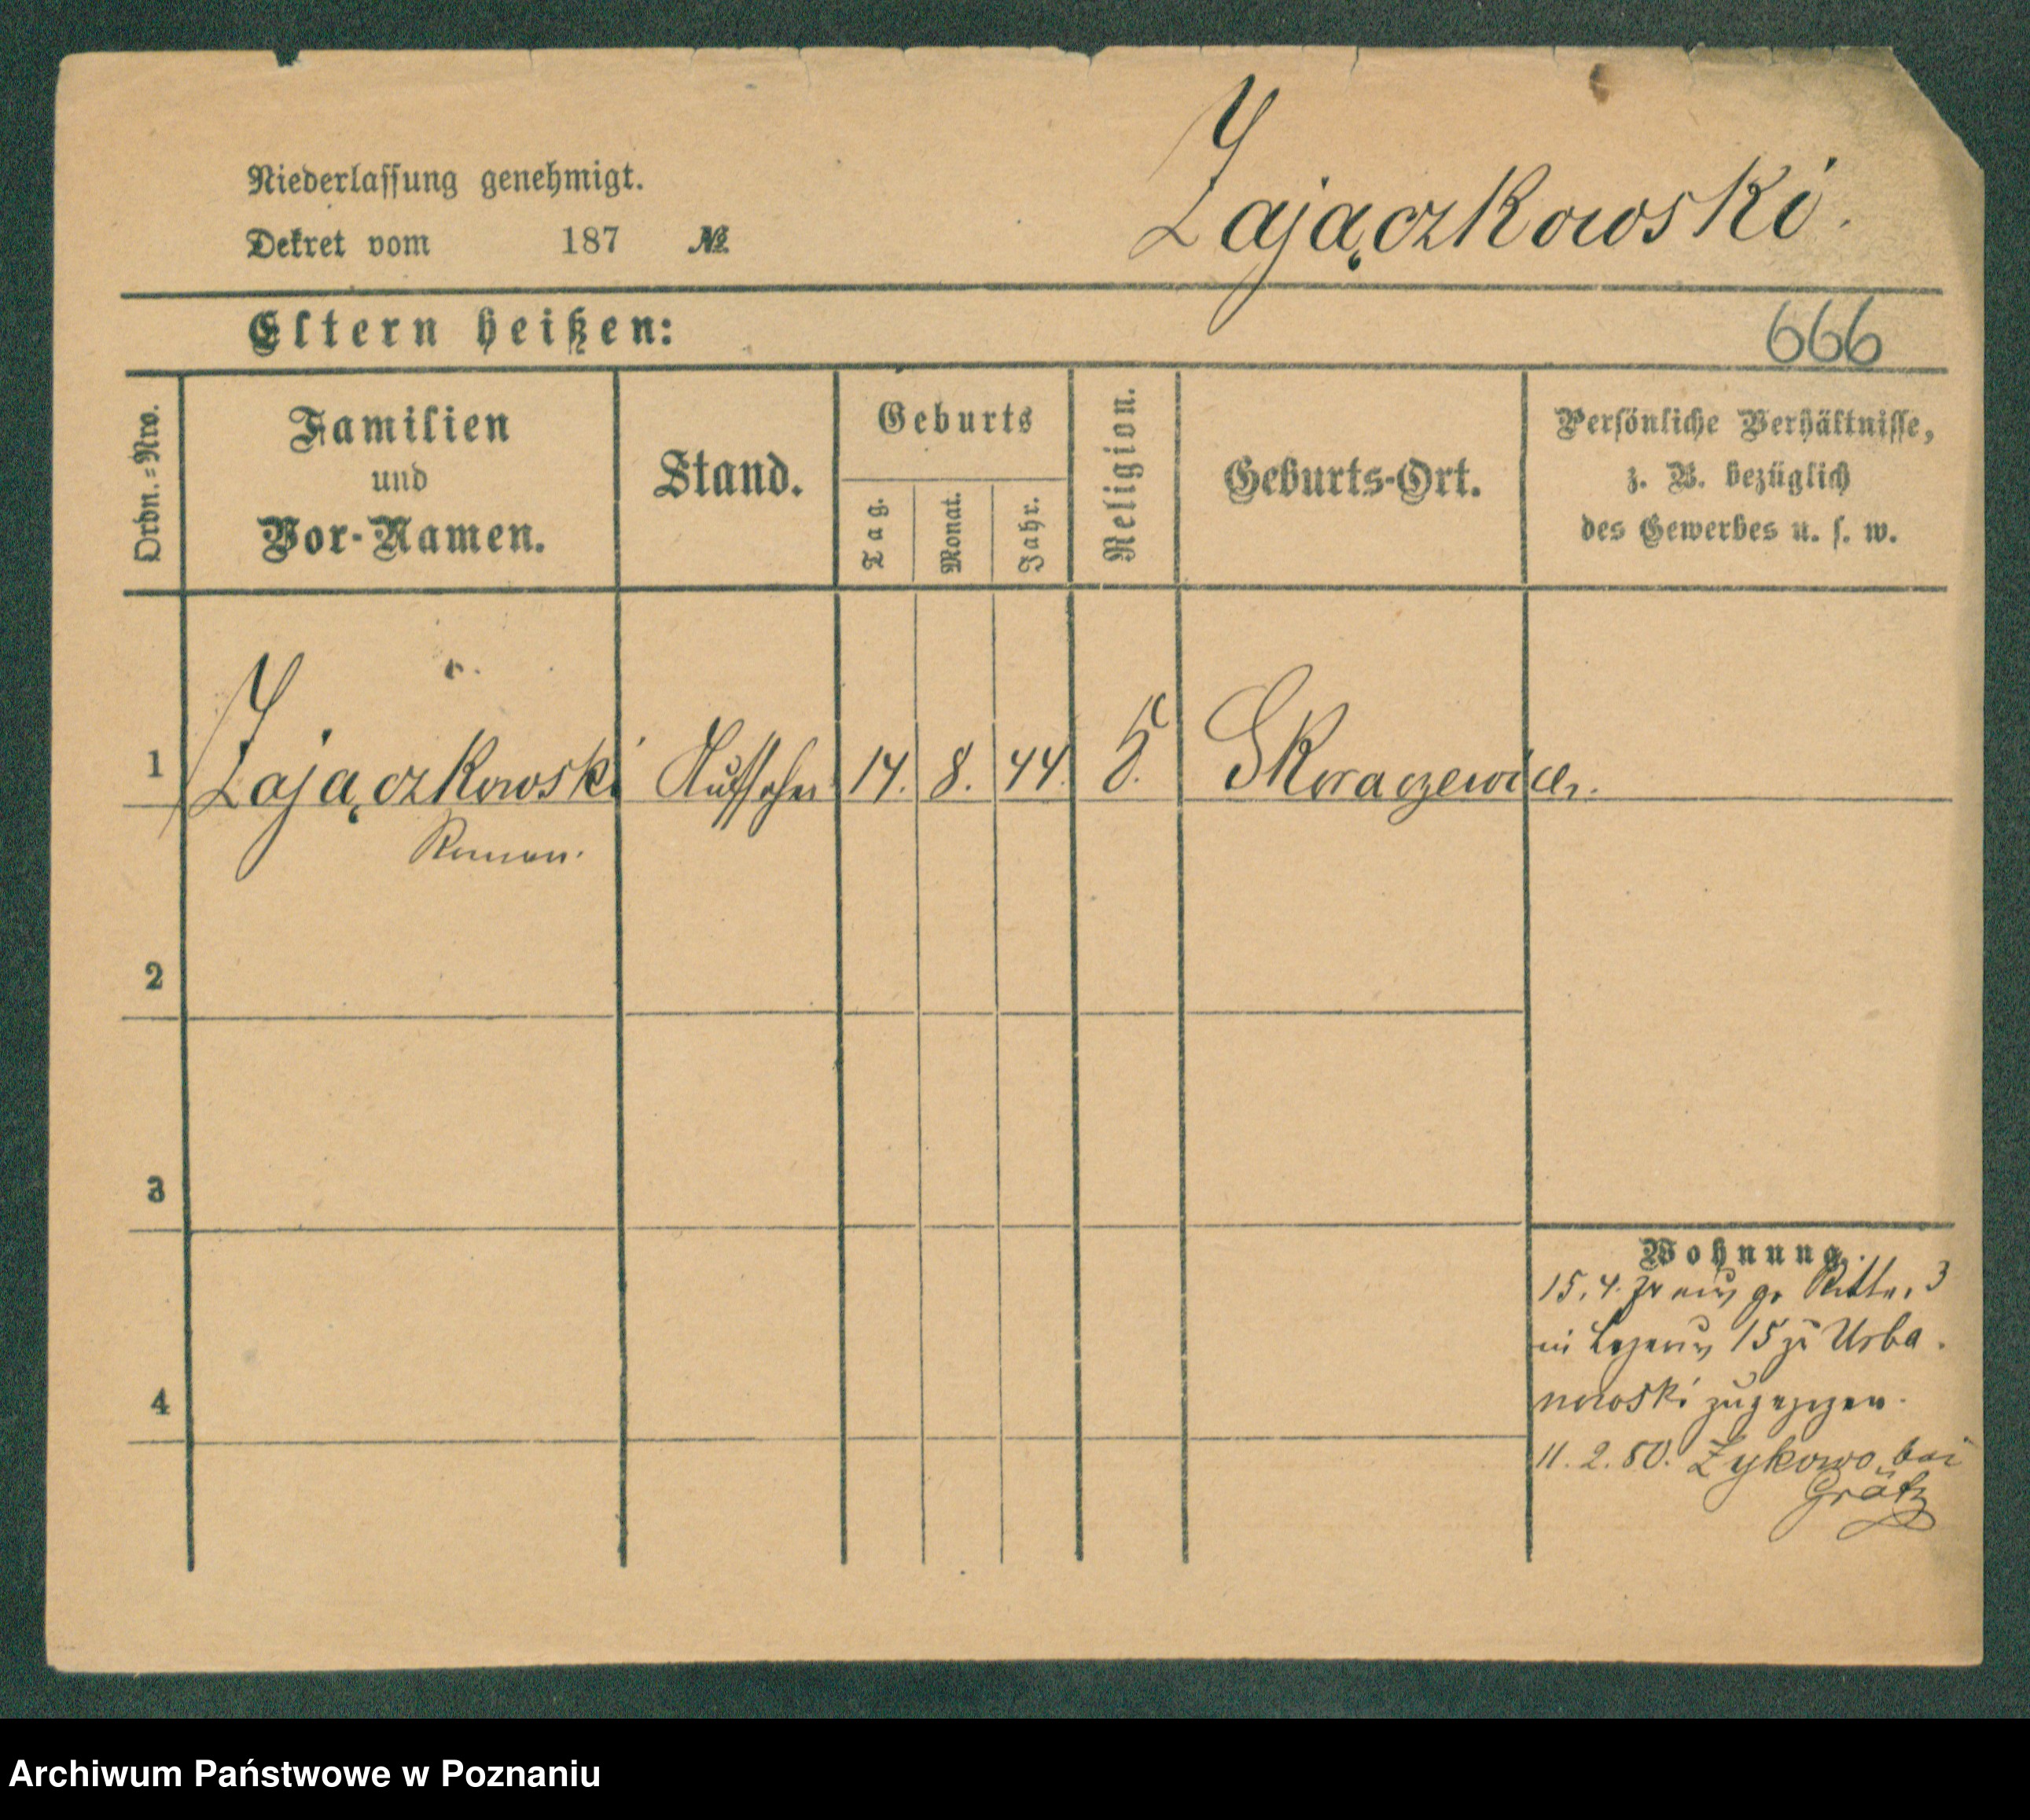 Niederlassung genehmigt.
Dekret vom 187 №
Zajączkowski.
Eltern heißen:
666
Ordn.-Nro.
Familien
und
Vor-Namen.
Stand.
Geburts
Tag.
Monat.
Jahr.
Religion.
Geburts-Ort.
Persönliche Verhältnisse,
z. B. bezüglich
des Gewerbes u. s. w.
1 Zajączkowski 14. 8. 44.
Roman.
2
3
4
Wohnung.
15. 4. gr Ritter. 3
in 15 zu Urba
nowski zugezogen.
11. 2. 80. Zykowo bei
Grätz
Archiwum Państwowe w Poznaniu